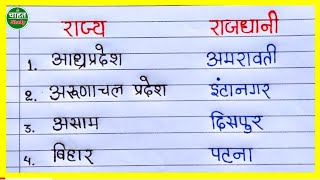 चाहत
Study
राज्य राजधानी
1. आंध्रप्रदेश अमरावती
2. अरुणाचल प्रदेश ईटानगर
3. असाम दिसपुर
4. बिहार पटना